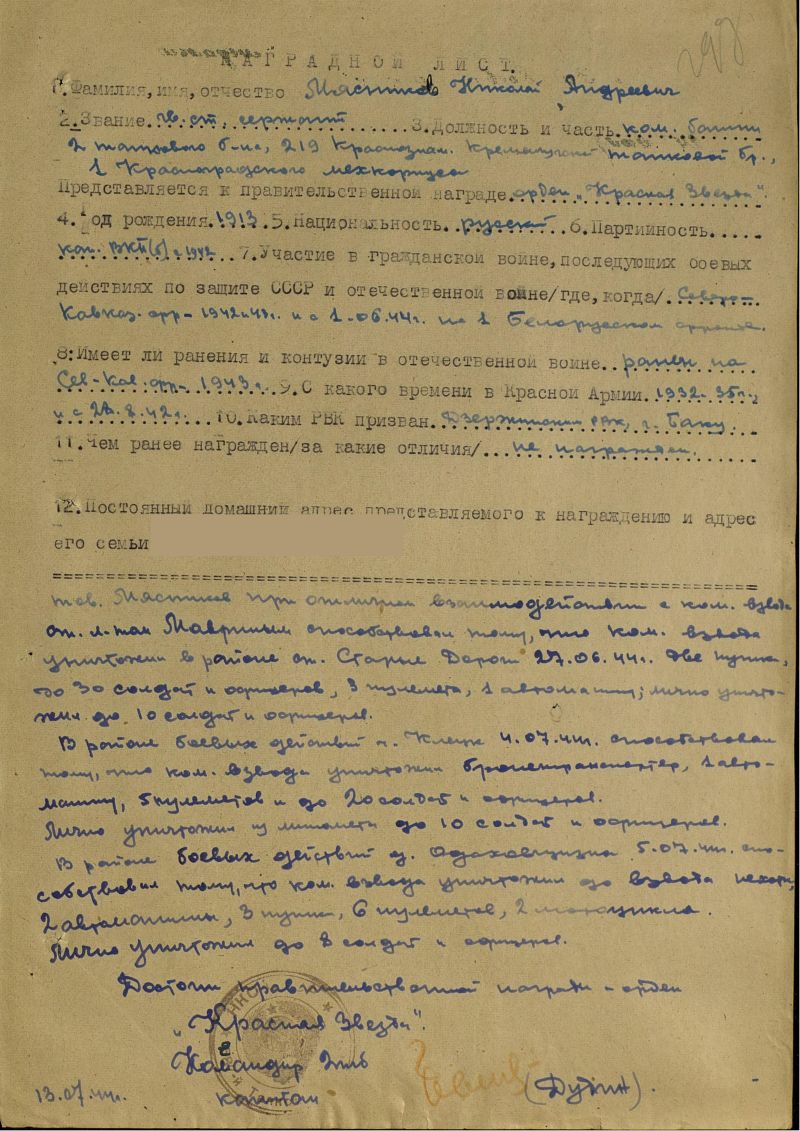 298
НАГРАДНОЙ ЛИСТ.
1. Фамилия, имя, отчество Мясников Николай Андреевич
2. Звание гв. ст. сержант 3. Должность и часть ком. башни
2 танкового б-на, 219 Краснознам. Кременчугской танковой бр.,
1 Красноградского мехкорпуса
Представляется к правительственной награде орден „Красная Звезда".
4. Год рождения 1913 5. Национальность русский 6. Партийность
кан. ВКП(б) с 1942 7. Участие в гражданской войне, последующих боевых
действиях по защите СССР и отечественной войне/где, когда/ Северо-
Кавказ. фр- 1942 и 43г. и с 1.06.44г. на 1 Белорусском фронте.
8. Имеет ли ранения и контузии в отечественной войне ранен на
Сев-Кав. фр- 1943 г. 9. С какого времени в Красной Армии 1932-35г.,
и с 28.8.42г. 10. Каким РВК призван Дзержинским РВК, г. Баку.
11. Чем ранее награжден/за какие отличия/ не награжден.
12. Постоянный домашний адрес представляемого к награждению и адрес
его семьи
тов. Мясников при отличном взаимодействии с ком. взвода
ст. л-том Мавриным способствовал тому, что ком. взвода
уничтожил в районе ст. Старые Дороги 27.06.44г. две пушки,
до 30 солдат и офицеров, 3 пулемета, 1 автомашину; лично уничто-
жил до 10 солдат и офицеров.
В районе боевых действий г. Клецк 4.07.44г. способствовал
тому, что ком. взвода уничтожил бронетранспортер, 1 авто-
машину, 5 пулеметов и до 20 солдат и офицеров.
Лично уничтожил из миномета до 10 солдат и офицеров.
В районе боевых действий д. Одаховщизна 5.07.44г. спо-
собствовал тому, что ком. взвода уничтожил до взвода пехоты,
2 автомашины, 3 пушки, 6 пулеметов, 2 мотоцикла.
Лично уничтожил до 8 солдат и офицеров.
Достоин правительственной награды - орден
„Красная Звезда".
Командир 2тб
13.07.44г. капитан (Дудин).